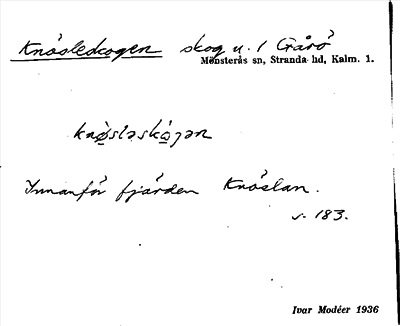 Knösleskogen skog u. 1 Gårö
Mönsterås sn, Stranda hd, Kalm. l.
knøsləskògən
Innanför fjärden Knöslan.
s. 183.
Ivar Modéer 1936